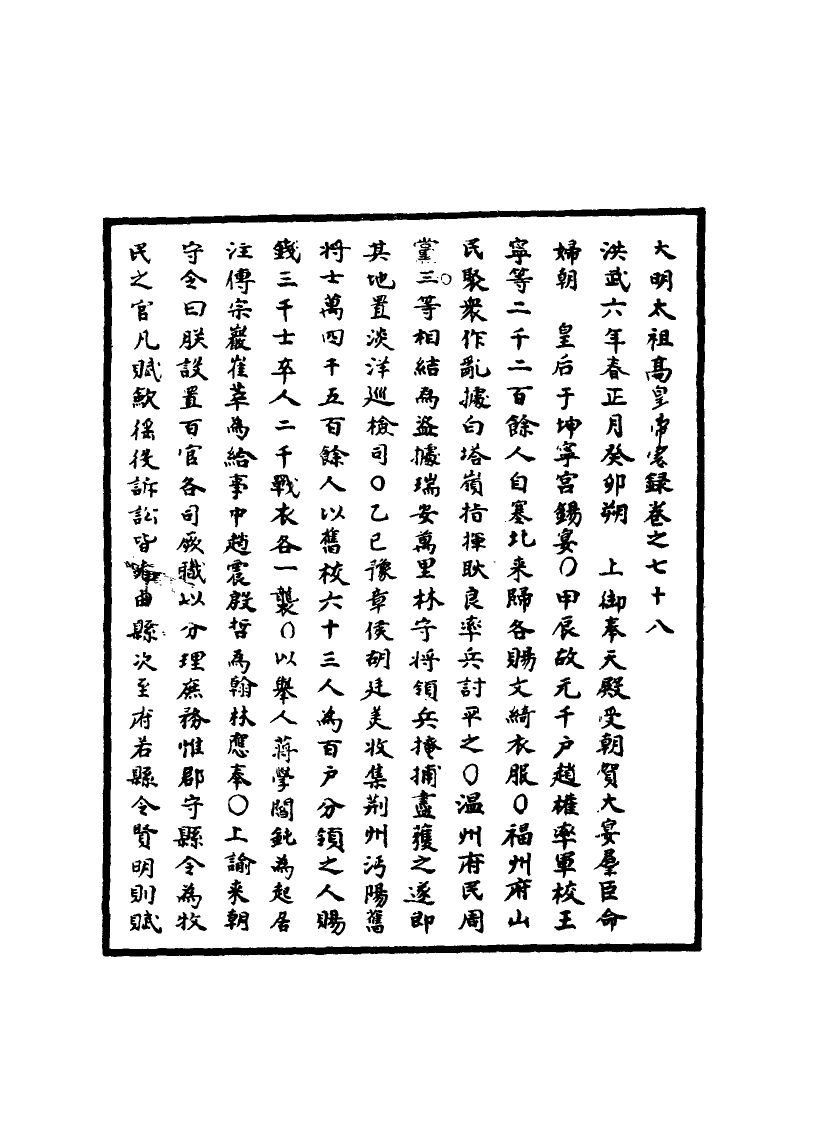 大明太祖高皇帝實録卷之七十八
洪武六年春正月癸卯朔　上御奉天殿受朝賀大宴羣臣命
婦朝　皇后于坤寧宮錫宴○甲辰故元千户趙權率軍校王
寧等二千二百餘人自塞北来歸各賜文綺衣服○福州府山
民聚衆作亂據白塔嶺指揮耿良率兵討平之○温州府民周
黨三等相結為盗據瑞安萬里林守将領兵掩捕盡獲之遂即
其地置淡洋巡檢司○乙巳豫章侯胡廷美收集荆州沔陽舊
将士萬四千五百餘人以舊校六十三人為百户分領之人賜
錢三千士卒人二千戰衣各一襲○以舉人蒋學閻鈍為起居
注傳宗巖崔莘為給事中趙震殷哲為翰林應奉○上諭来朝
守令曰朕設置百官各司厥職以分理庶務惟郡守縣令為牧
民之官凡賦歛徭役訴訟皆由縣次至府若縣令賢明則賦